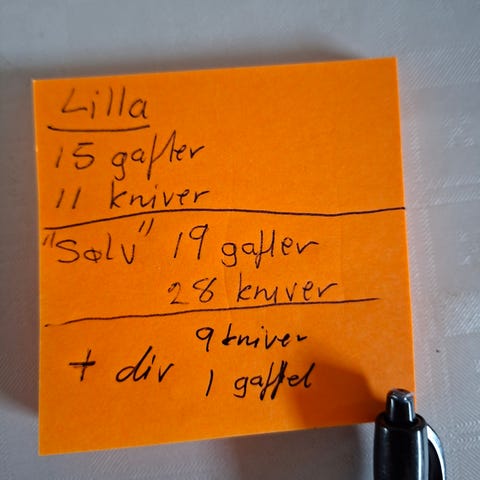 Lilla
15 gafler
11 kniver
"Sølv" 19 gafler
28 kniver
9 kniver
+ div
1 gaffel